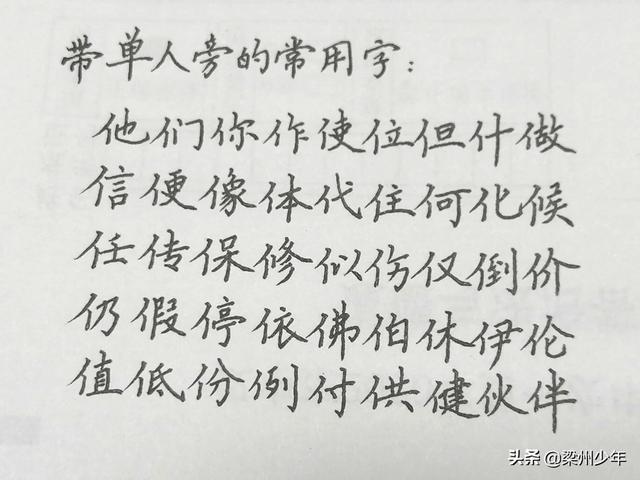 带单人旁的常用字：
他们你作使位但什做
信便像体代住何化候
任传保修似伤仅倒价
仍假停依佛伯休伊伦
值低份例付供健伙伴
头条 @梁州少年